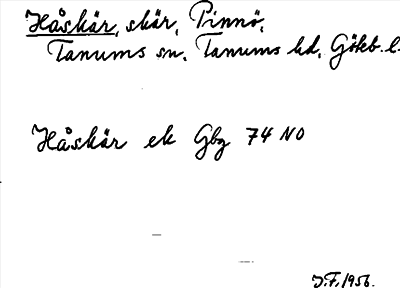 Håskär, skär, Pinnö,
Tanums sn. Tanums hd, Göteb. l.
Håskär ek Gbg 74 NO
J.F. 1956.